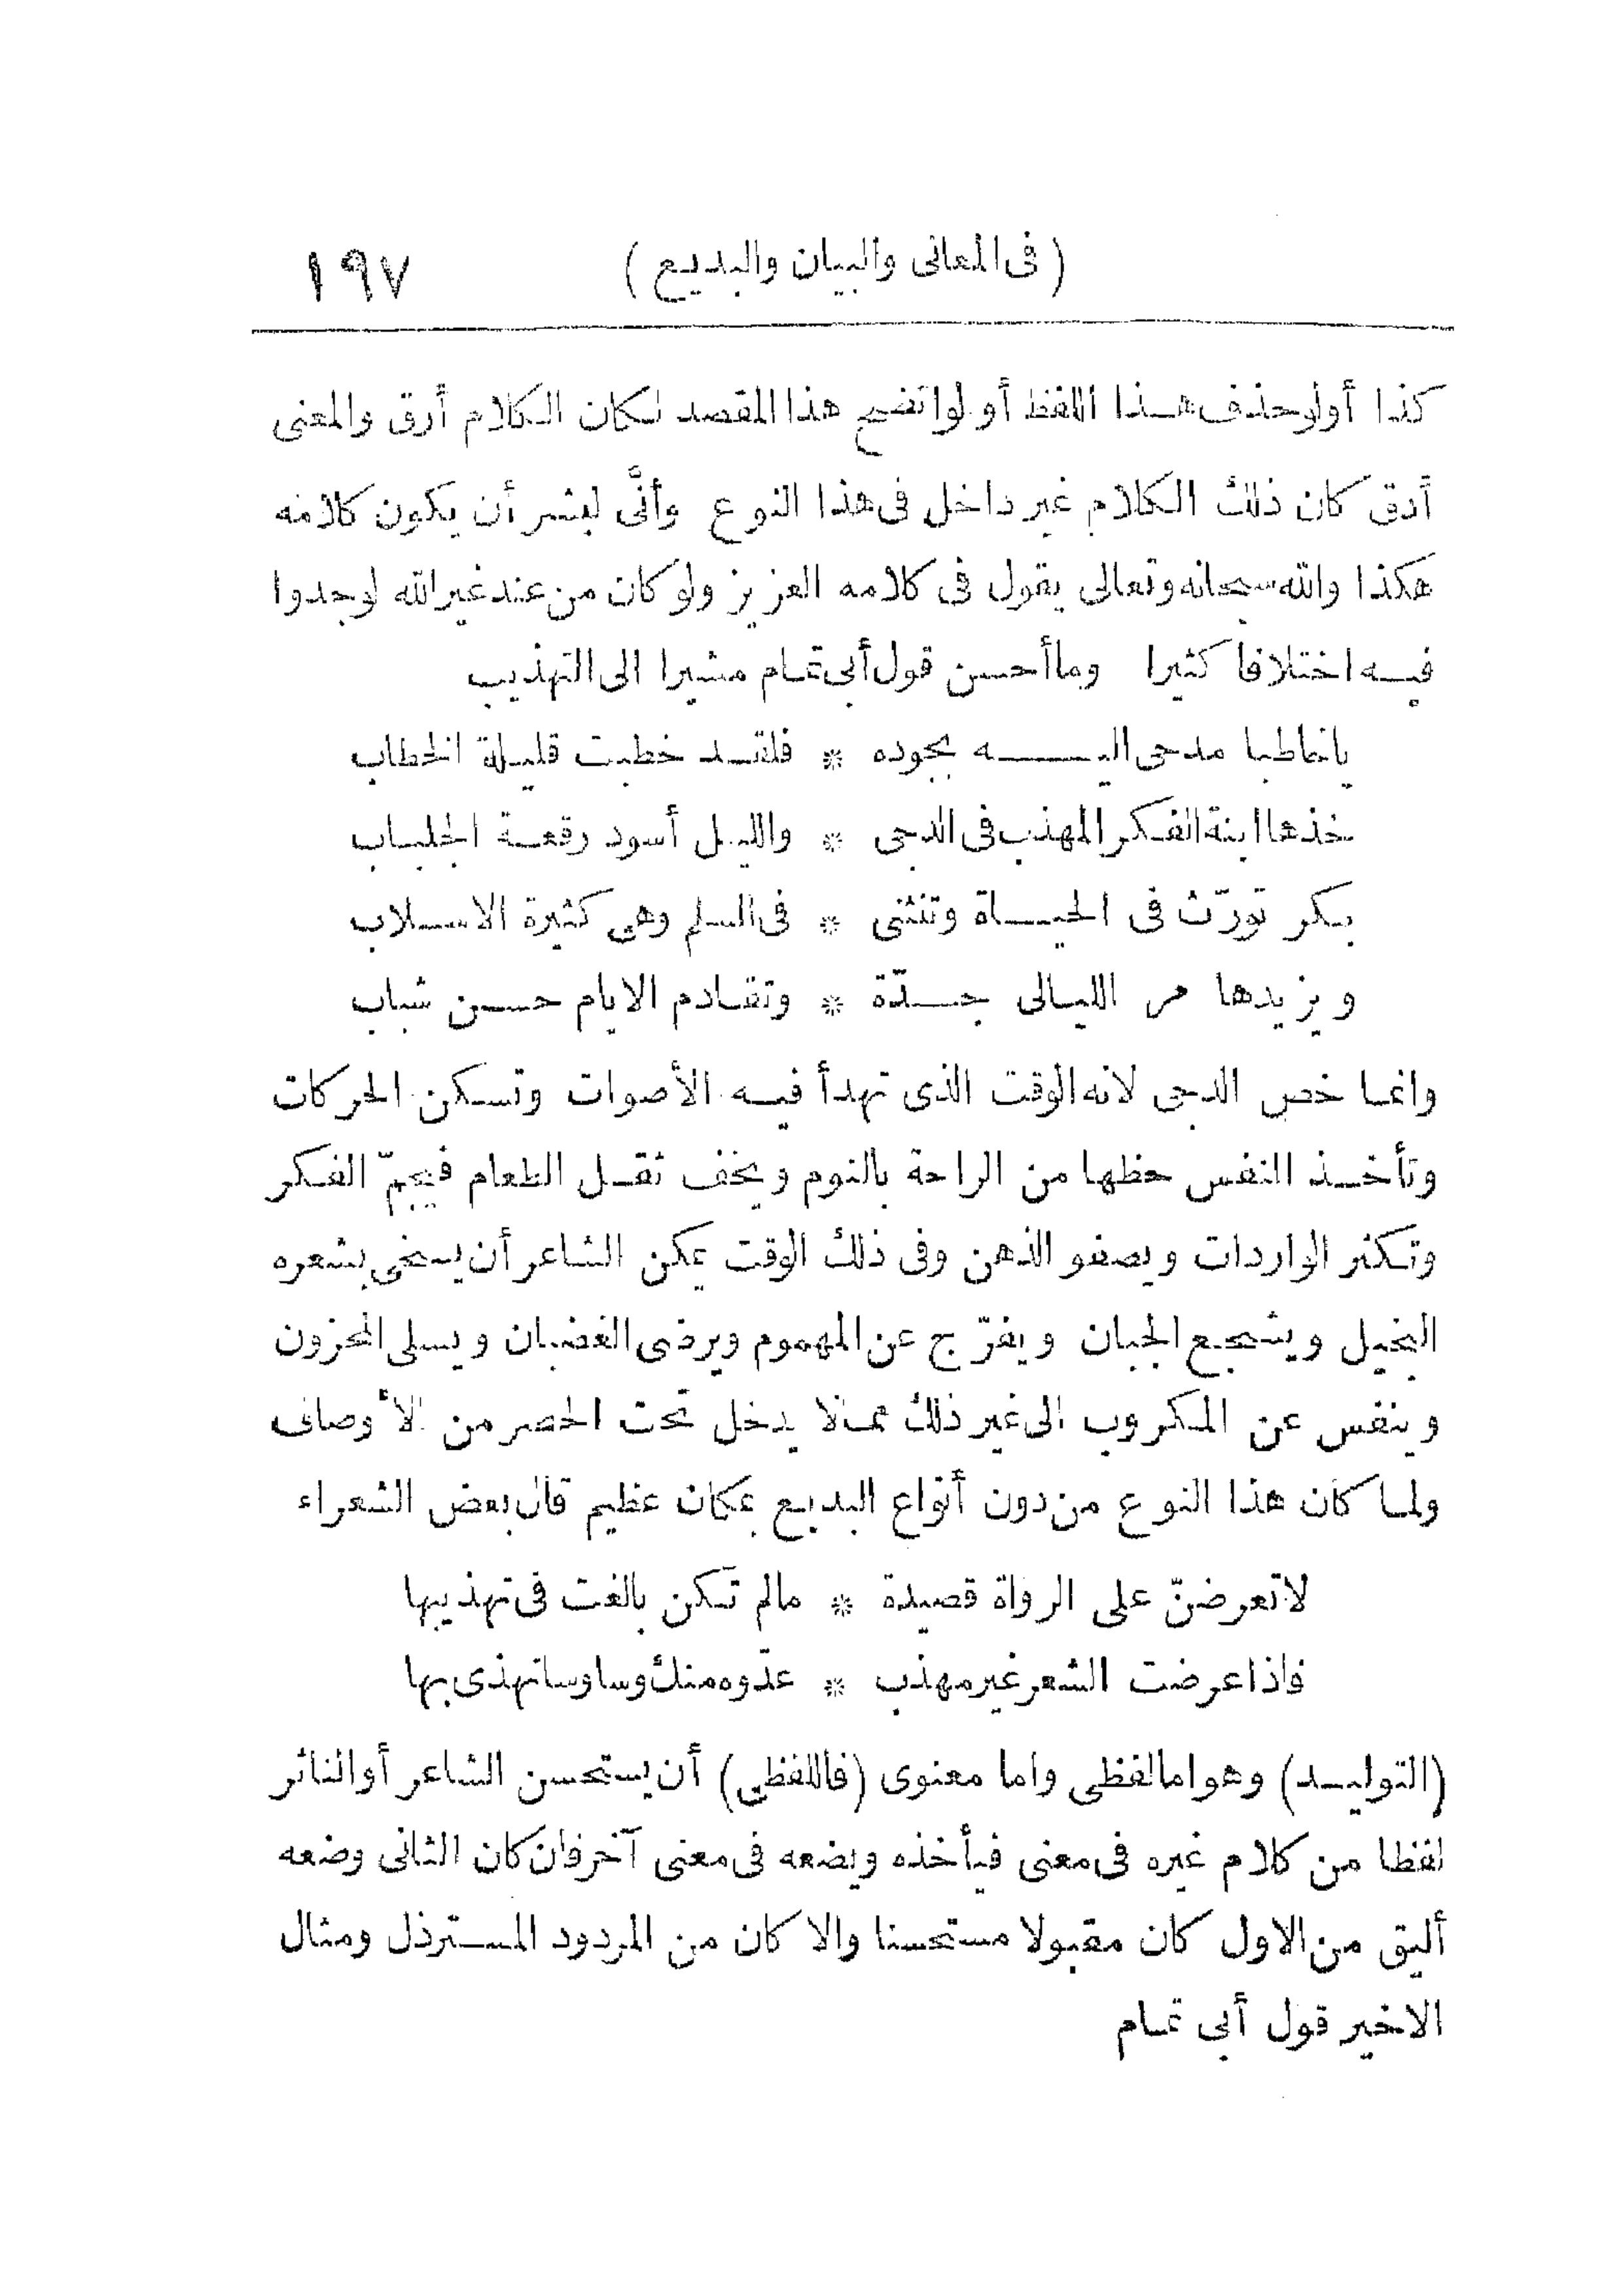 ( فى المعانى والبيان والبديع ) ١٩٧
كذا أولو حذف هذا اللفظ أو لو اتضح هذا المقصد لكان الكلام أرق والمعنى
أدق كان ذلك الكلام غير داخل فى هذا النوع وأنَّى لبشر أن يكون كلامه
هكذا والله سبحانه وتعالى يقول فى كلامه العزيز ولو كان من عند غير الله لوجدوا
فيه اختلافا كثيرا وما أحسن قول أبى تمام مشيرا الى التهذيب
يا خاطبا مدحى اليه بجوده * فلقد خطبت قليلة الخطاب
خذها ابنة الفكر المهذب فى الدجى * والليل أسود رقعة الجلباب
بكر تورّث فى الحياة وتنثنى * فى السلم وهى كثيرة الاسلاب
ويزيدها مر الليالى جدّة * وتقادم الايام حسن شباب
وانما خص الدجى لانه الوقت الذى تهدأ فيه الأصوات وتسكن الحركات
وتأخذ النفس حظها من الراحة بالنوم ويخف ثقل الطعام فيجمّ الفكر
وتكثر الواردات ويصفو الذهن وفى ذلك الوقت يمكن الشاعر أن يسخى بشعره
البخيل ويشجع الجبان ويفرّج عن المهموم ويرضى الغضبان ويسلى المحزون
وينفس عن المكروب الى غير ذلك مما لا يدخل تحت الحصر من الأوصاف
ولما كان هذا النوع من دون أنواع البديع بمكان عظيم قال بعض الشعراء
لا تعرضنّ على الرواة قصيدة * مالم تكن بالغت فى تهذيبها
فاذا عرضت الشعر غير مهذب * عدّوه منك وساوسا تهذى بها
(التوليد) وهو اما لفظى واما معنوى (فاللفظى) أن يستحسن الشاعر أو الناثر
لفظا من كلام غيره فى معنى فيأخذه ويضعه فى معنى آخر فان كان الثانى وضعه
أليق من الاول كان مقبولا مستحسنا والا كان من المردود المسترذل ومثال
الاخير قول أبى تمام